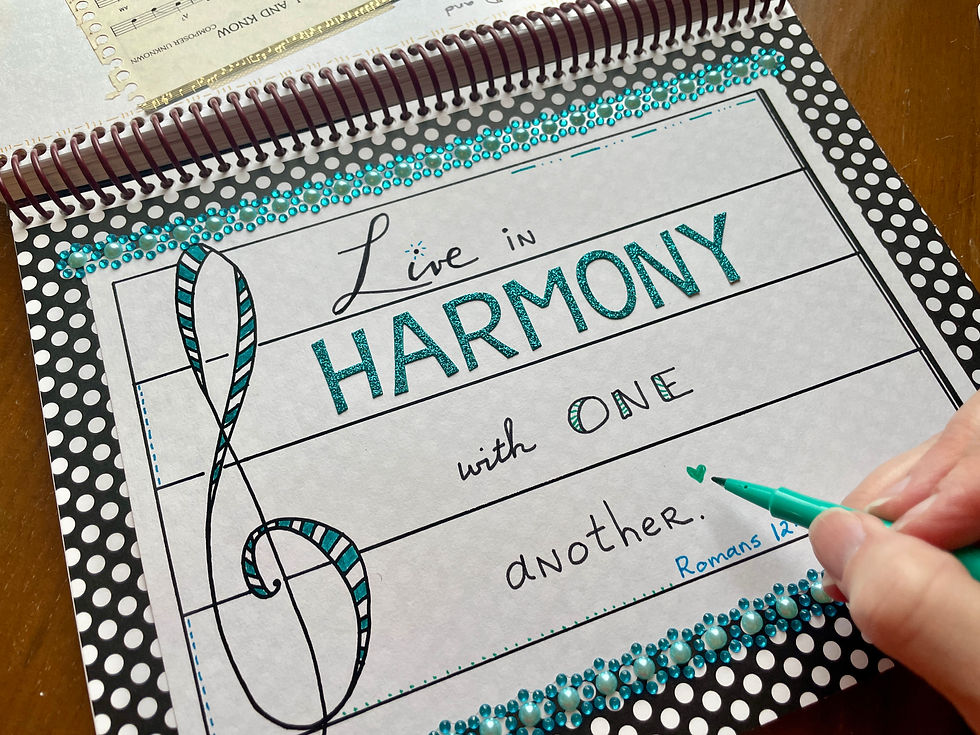 AND KNOW
COMPOSER UNKNOWN
and
Live in
HARMONY
with ONE
another.
Romans 12: